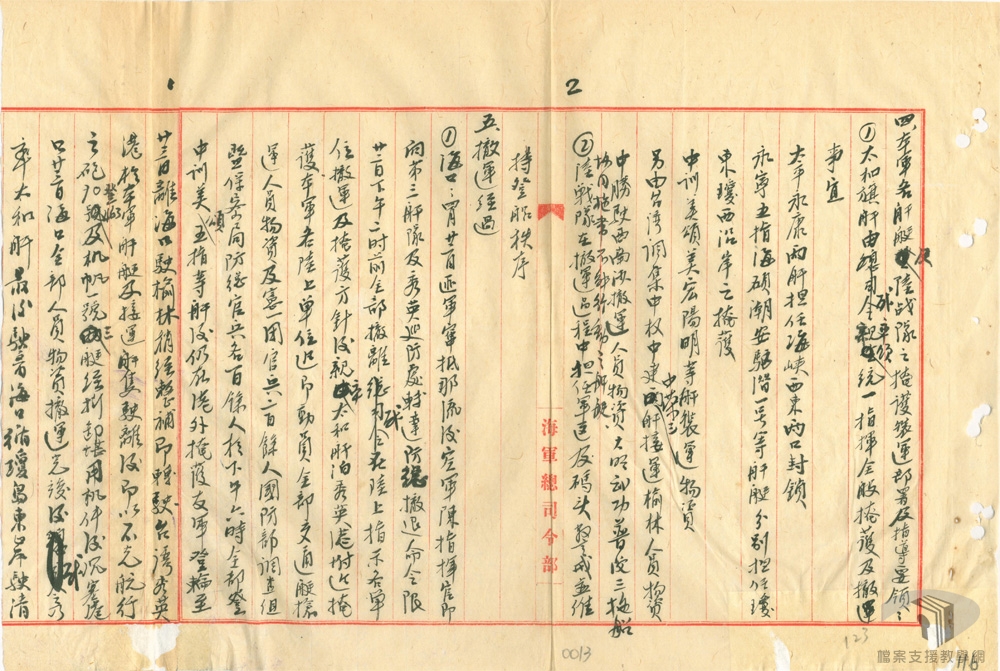 2
四、本軍各軍艦及陸战隊之掩護裝運部署及指導要領：
①太和旗艦由 統一指揮全般掩護及撤運
事宜
太平永康兩艦担任海峽西東兩口封鎖
永寧五指海碩潮安駱潛一号等艦艇分别担任瓊
東瓊西沿岸之掩護
中訓美頌美宏陽明等艦裝運物資
另由台湾調集中权中建 艦接運榆林人員物資
中勝駛西南沙撤運人員物資
②陸戰隊在撤運过程中担任軍運及碼头警戒並維
持登船秩序
五、撤運經過
①海口：四月廿一日匪軍窜抵那流後空軍陳指揮官即
向第三艦隊及秀英巡防處轉達防總撤退命令限
廿二日下午二时前全部撤離 在陸上指示各單
位撤運及掩護方針後 太和艦泊秀英港附近掩
護本軍各陸上單位迅即動員全部交通艇搶
運人員物資及憲一團官兵二百餘人國防部調查組
暨保密局防總官兵各百餘人於下午六時全部登
中訓美頌五指等艦後仍在港外掩護友軍登輪至
1
廿三日離海口駛榆林稍經整補即轉駛台湾秀英
港於本軍艦艇及接運艦隻駛離後即以不克航行
之砲 登歸及机帆一號三艇經拆卸堪用机件後沉塞港
口廿二日海口全部人員物資撤運完竣後
率太和艦最後駛离海口循瓊島東岸駛清
海軍總司令部
0013
123
116
檔案支援教學網